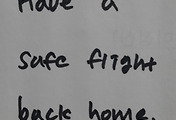 Have a
safe flight
back home.